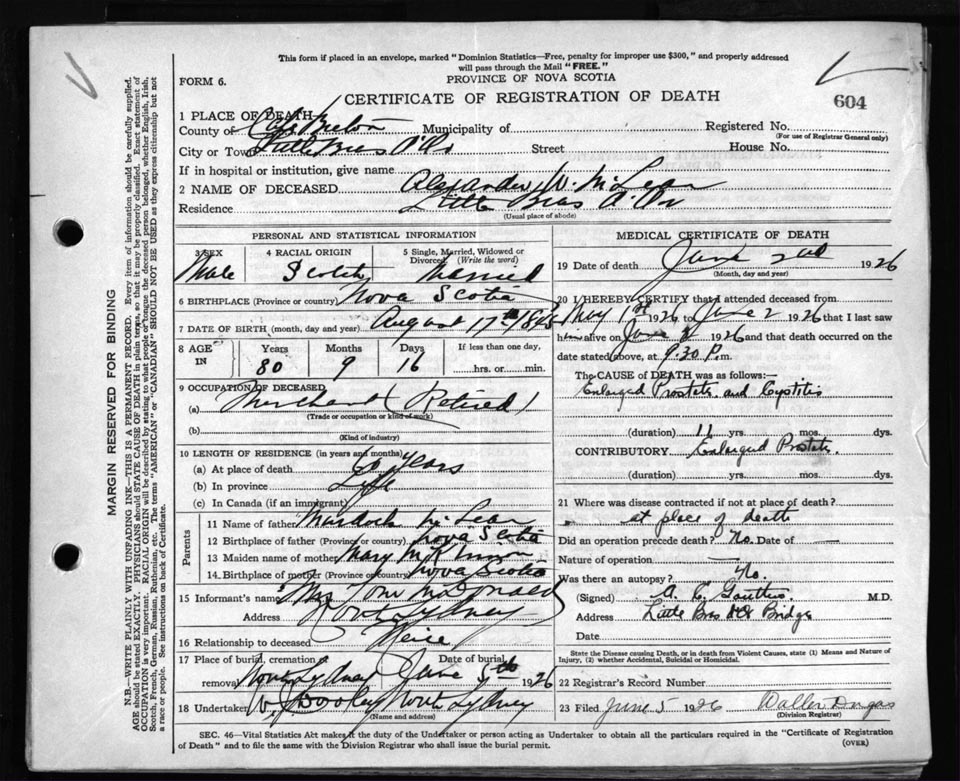 This form if placed in an envelope, marked "Dominion Statistics—Free, penalty for improper use $300," and properly addressed
will pass through the Mail "FREE."
FORM 6.
PROVINCE OF NOVA SCOTIA
CERTIFICATE OF REGISTRATION OF DEATH
604
1 PLACE OF DEATH
County of Cape Breton Municipality of Registered No.
(For use of Registrar General only)
City or Town Little Bras d'Or Street House No.
If in hospital or institution, give name
2 NAME OF DECEASED Alexander W. McLean
Residence Little Bras d'Or
(Usual place of abode)
PERSONAL AND STATISTICAL INFORMATION
3 SEX 4 RACIAL ORIGIN 5 Single, Married, Widowed or
Divorced (Write the word)
Male Scotch Married
6 BIRTHPLACE (Province or country) Nova Scotia
7 DATE OF BIRTH (month, day and year) August 17th 1845
8 AGE IN Years Months Days If less than one day,
80 9 16 hrs. or min.
9 OCCUPATION OF DECEASED
(a) Merchant (Retired)
(Trade or occupation or kind of work)
(b)
(Kind of industry)
10 LENGTH OF RESIDENCE (in years and months)
(a) At place of death 60 years
(b) In province Life
(c) In Canada (if an immigrant)
Parents
11 Name of father Murdoch McLean
12 Birthplace of father (Province or country) Nova Scotia
13 Maiden name of mother Mary McKinnon
14 Birthplace of mother (Province or country) Nova Scotia
15 Informant's name Mrs Tom McDonald
Address North Sydney
16 Relationship to deceased Neice
17 Place of burial, cremation or Date of burial
removal North Sydney June 4th 1926
18 Undertaker W J Dooley North Sydney
(Name and address)
MEDICAL CERTIFICATE OF DEATH
19 Date of death June 2nd 1926
(Month, day and year)
20 I HEREBY CERTIFY that I attended deceased from
May 1st 1926 to June 2 1926 that I last saw
him alive on June 2 1926 and that death occurred on the
date stated above, at 9.30 P.m.
The CAUSE of DEATH was as follows:—
Enlarged Prostate and Cystitis
(duration) 11 yrs. mos. dys.
CONTRIBUTORY Enlarged Prostate.
(duration) yrs. mos. dys.
21 Where was disease contracted if not at place of death?
at place of death
Did an operation precede death? No. Date of —
Nature of operation —
Was there an autopsy? No.
(Signed) M.D.
Address Little Bras d'Or Bridge
Date
State the Disease causing Death, or in death from Violent Causes, state (1) Means and Nature of
Injury, (2) whether Accidental, Suicidal or Homicidal.
22 Registrar's Record Number
23 Filed June 5 1926 Walter Dugas
(Division Registrar)
SEC. 46—Vital Statistics Act makes it the duty of the Undertaker or person acting as Undertaker to obtain all the particulars required in the "Certificate of Registration
of Death" and to file the same with the Division Registrar who shall issue the burial permit.
(OVER)
MARGIN RESERVED FOR BINDING
N.B.—WRITE PLAINLY WITH UNFADING INK—THIS IS A PERMANENT RECORD. Every item of information should be carefully supplied.
AGE should be stated EXACTLY. PHYSICIANS should STATE CAUSE OF DEATH in plain terms, so that it may be properly classified. Exact statement of
OCCUPATION is very important. RACIAL ORIGIN will be described by stating to what people or tongue the deceased person belonged, whether English, Irish,
Scotch, French, German, Russian, Ruthenian, etc. The terms "AMERICAN" or "CANADIAN" SHOULD NOT BE USED as they express citizenship but not
a race or people. See instructions on back of Certificate.